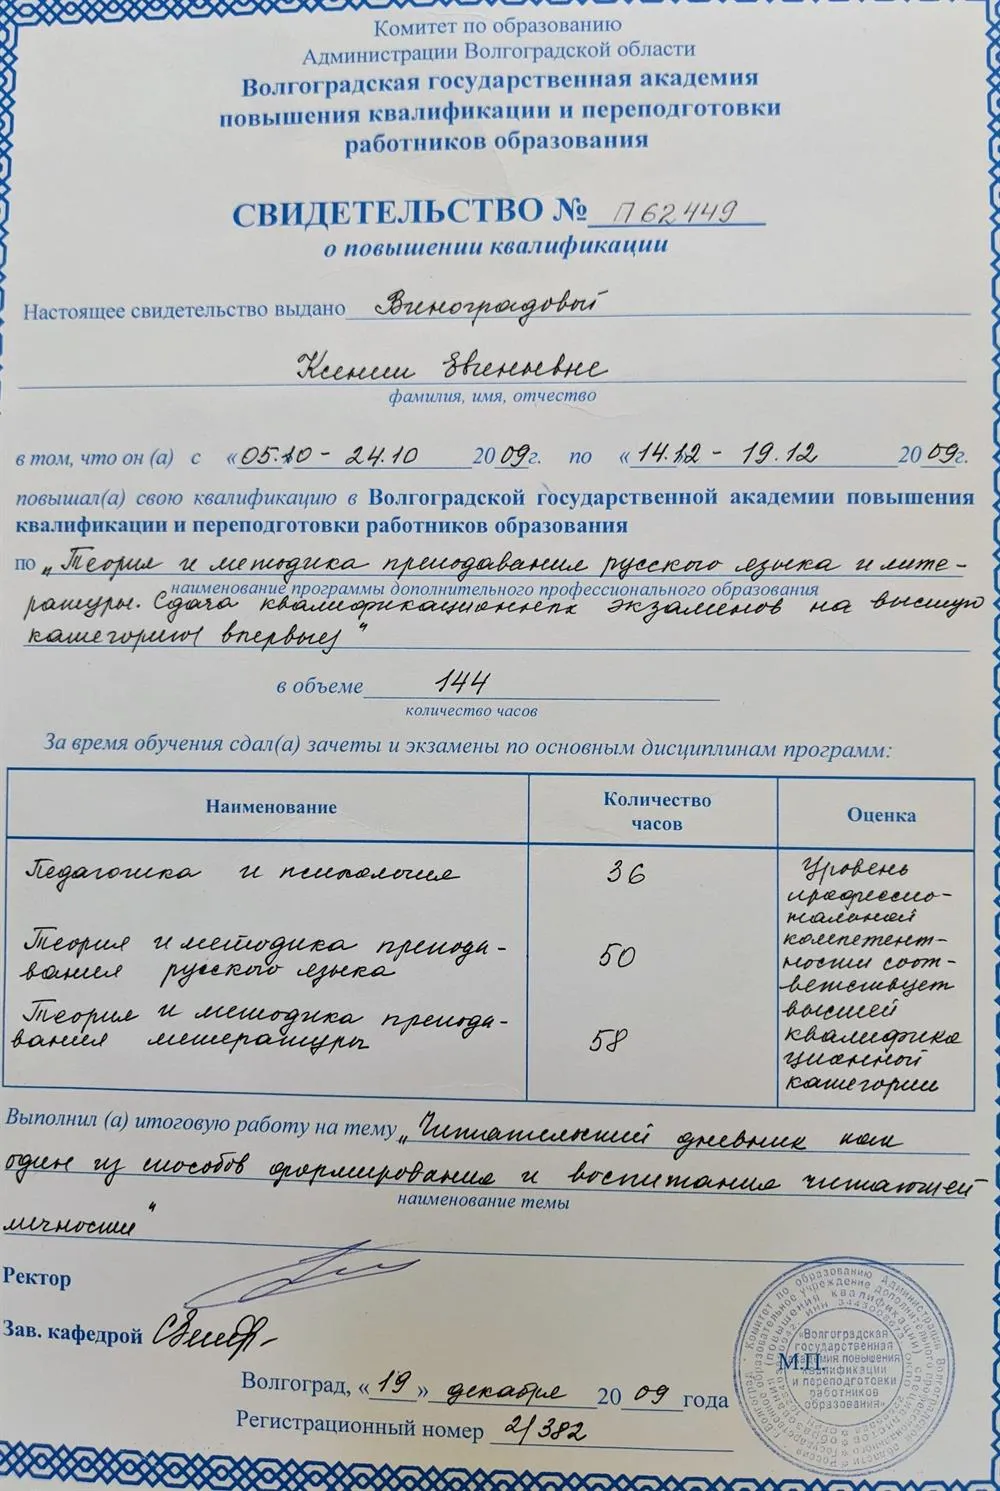 Комитет по образованию
Администрации Волгоградской области
Волгоградская государственная академия
повышения квалификации и переподготовки
работников образования
СВИДЕТЕЛЬСТВО № П62449
о повышении квалификации
Настоящее свидетельство выдано Виноградовый
Ксении Евгеньевне
фамилия, имя, отчество
в том, что он (а) с «05.10 - 24.10 2009г. по «14.12 - 19.12 2009г.
повышал(а) свою квалификацию в Волгоградской государственной академии повышения
квалификации и переподготовки работников образования
по „Теория и методика преподавания русского языка и лите-
наименование программы дополнительного профессионального образования
ратуры. Сдача квалификационных экзаменов на высшую
категорию( впервые)"
в объеме 144
количество часов
За время обучения сдал(а) зачеты и экзамены по основным дисциплинам программ:
Наименование Количество часов Оценка
Педагогика и психология 36
Теория и методика преподавания русского языка 50
Теория и методика преподавания литературы 58
Уровень
профессио-
нальной
компетент-
ности соот-
ветствует
высшей
квалифика
ционной
категории
Выполнил (а) итоговую работу на тему „Читательский дневник как
один из способов формирования и воспитания читающей
наименование темы
личности"
Ректор
Зав. кафедрой
Волгоград, «19» декабря 2009 года
Регистрационный номер 2/382
М.П.
«Волгоградская
государственная
академия повышения
квалификации
и переподготовки
работников
образования»